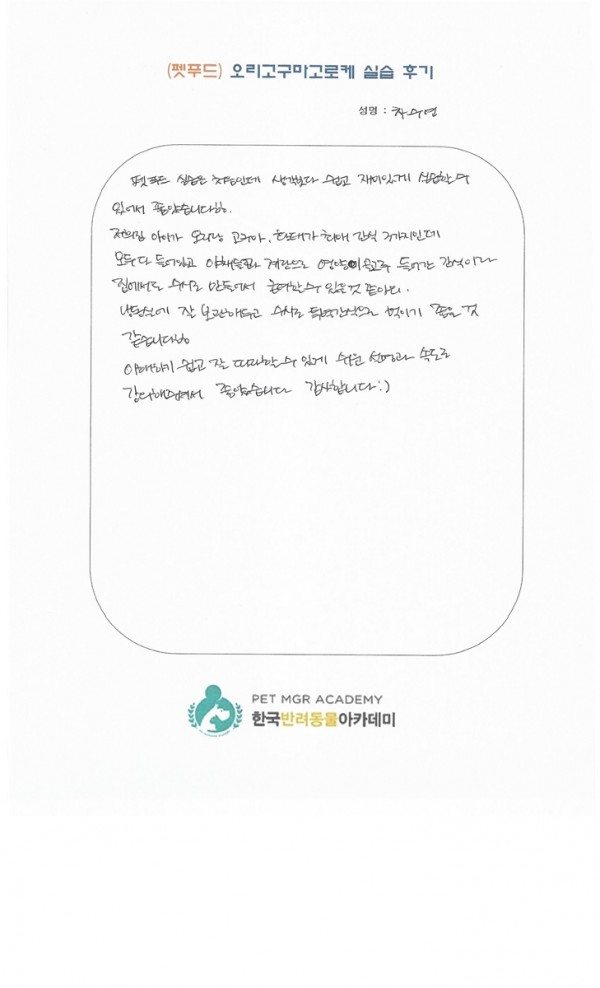 (펫푸드) 오리고구마고로케 실습 후기
성명 : 차수영
펫푸드 실습은 처음인데 생각보다 쉽고 재미있게 실습할 수
있어서 좋았습니다ㅎ
저희집 아이가 오리랑 고구마, 황태가 최애 간식 3가지인데
모두 다 들어있고 야채들과 계란으로 영양이 골고루 들어간 간식이라
집에서도 수시로 만들어서 급여할 수 있을 것 같아요.
냉동실에 잘 보관해두고 수시로 특별간식으로 먹이기 좋을 것
같습니다ㅎ
이해하기 쉽고 잘 따라할 수 있게 쉬운 설명과 속도로
강의해주셔서 좋았습니다 감사합니다:)
PET MGR ACADEMY
한국반려동물아카데미